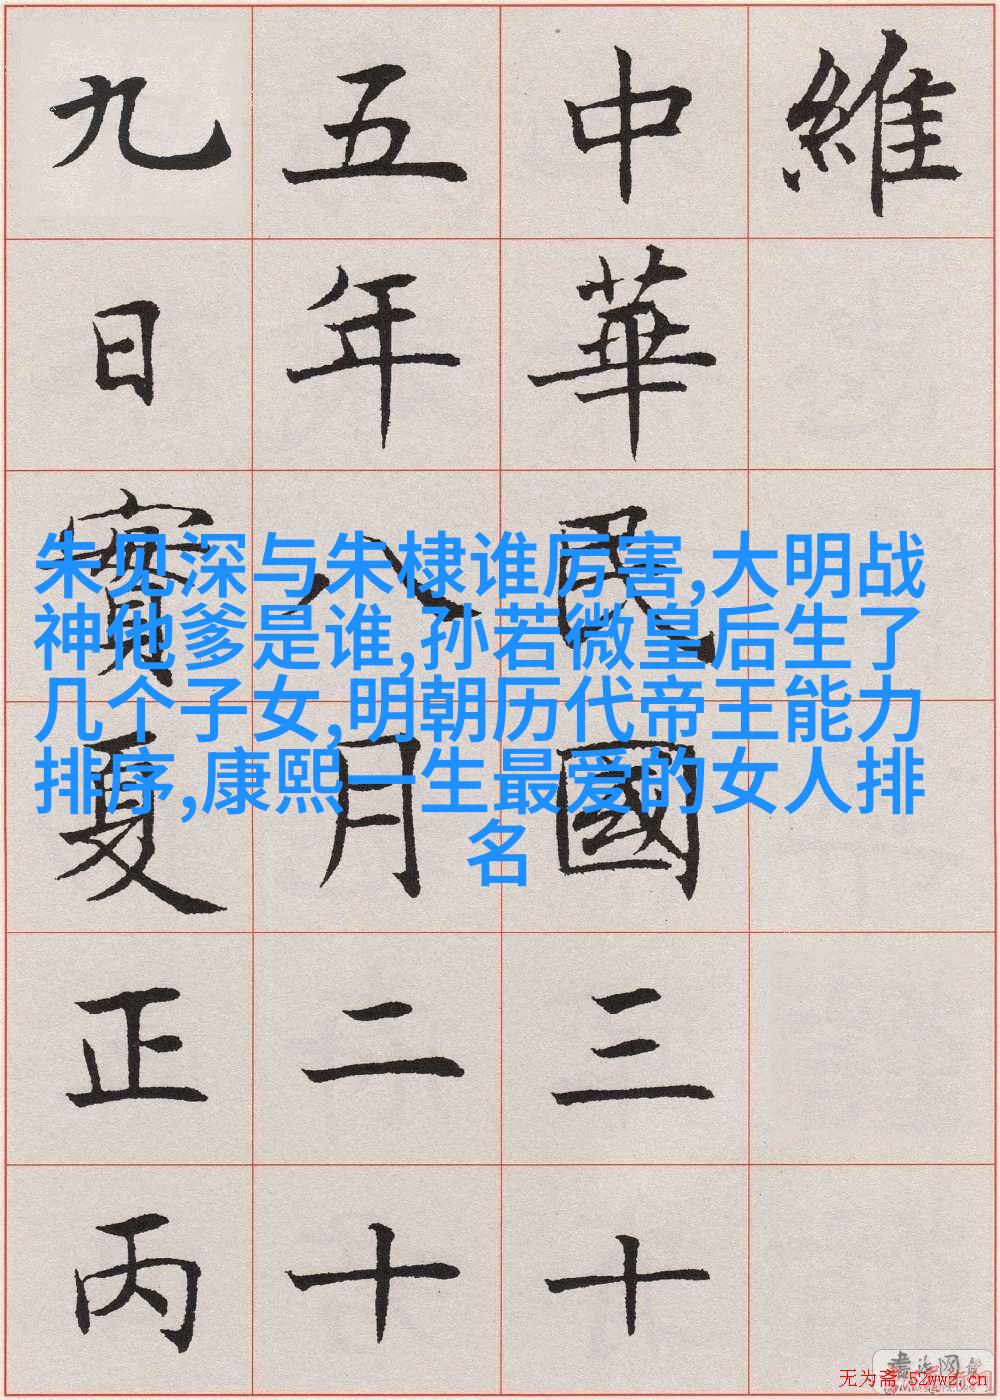 維
中華民國三十
五年八月二十
九日實夏正丙
朱见深与朱棣谁厉害,大明战
神他爹是谁,孙若微皇后生了
几个子女,明朝历代帝王能力
排序,康熙一生最爱的女人排
名
书法网
无为斋 52wwz.cn